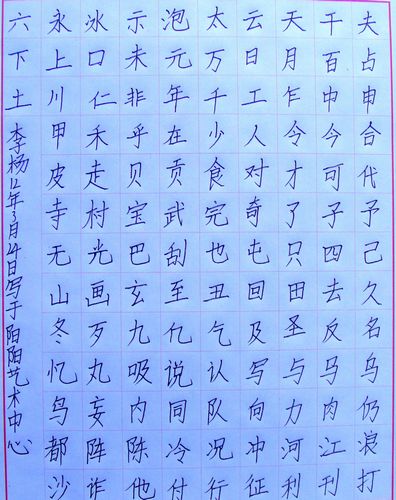 夫占申合代予己久名乌仍浪打
干百中今可子四去反马肉江刊
天月乍令才了只田圣与力河利
云日工人对奇屯回及写向冲征
太万千少食完也丑气认队况行
泡元年在贡武刮至亿说同冷付
示未非乎贝宝巴玄九吸内陈他
冰口仁禾走村光画歹丸妄阵诈
永上川甲皮寺无山冬忆鸟都沙
六下土
李杨12年3月24日写于阳阳艺术中心